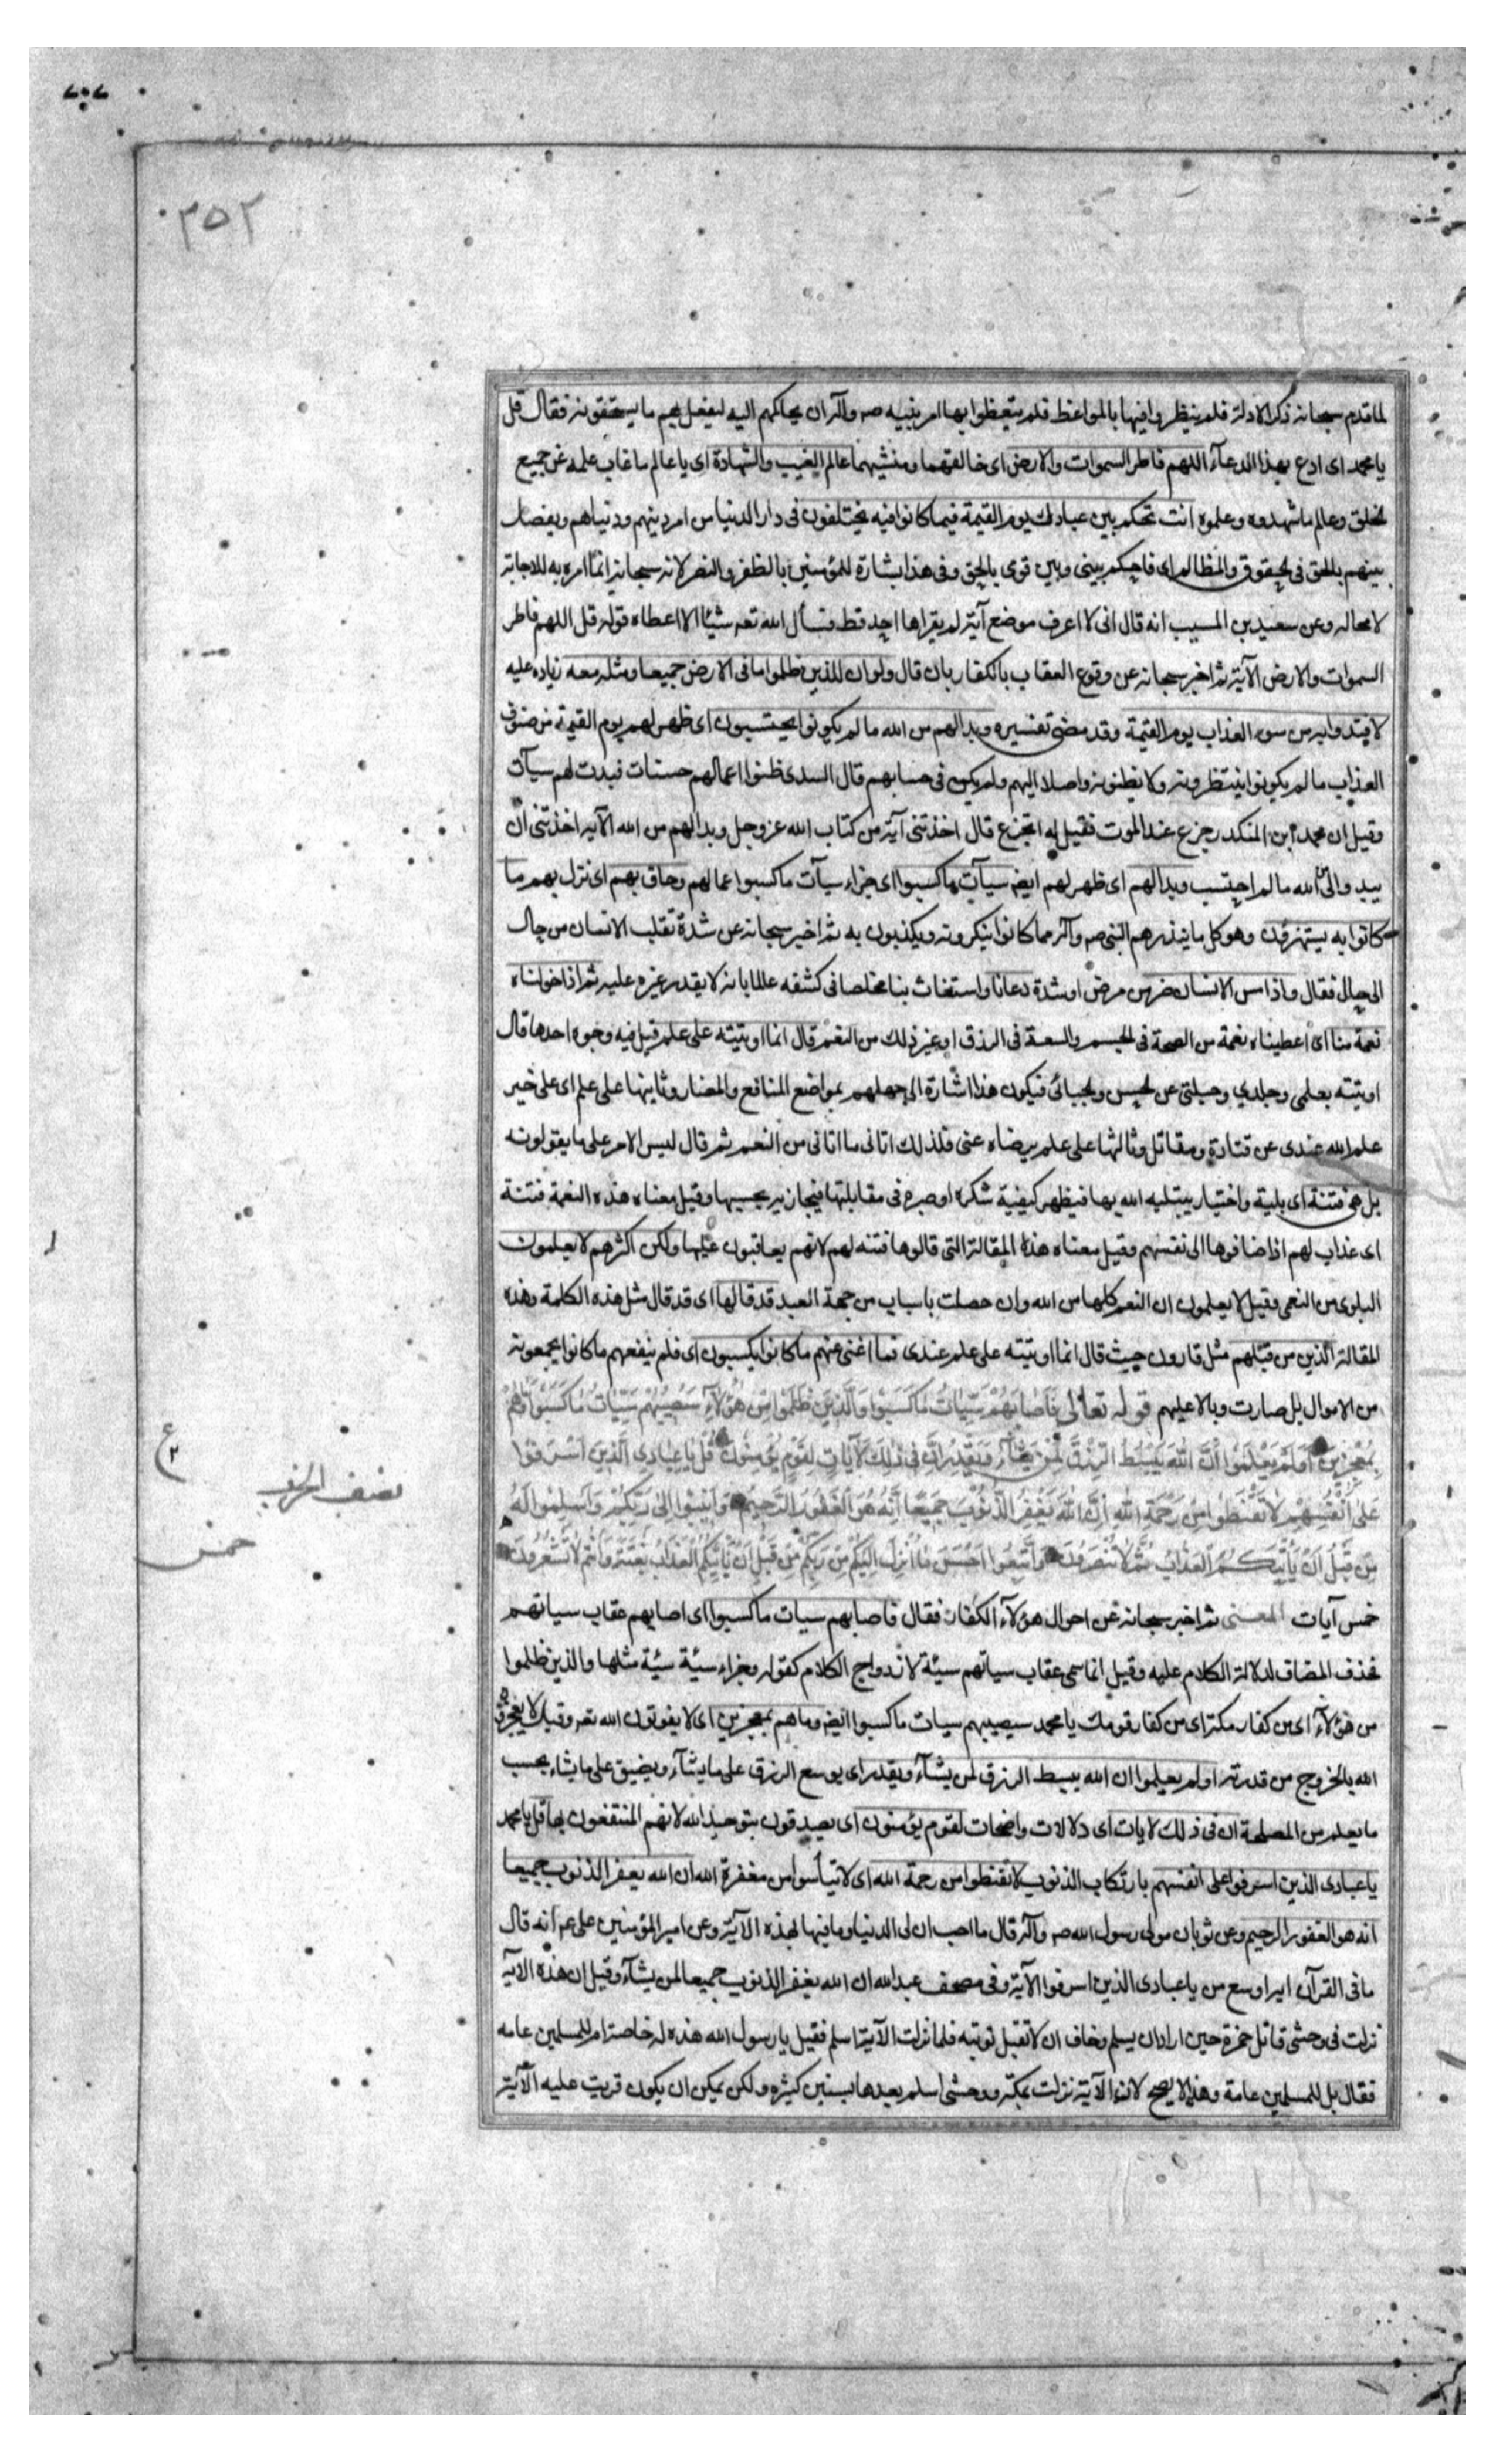 ٣٥٢
لما قدم سبحانه ذكر الادلة فلم ينظروا فيها بالمواعظ فلم يتعظوا بها امر نبيه صه وآله ان يحاكمهم اليه ليفعل بهم ما يستحقونه فقال قل
يا محمد اى ادع بهذا الدعآء اللهم فاطر السموات والارض اى خالقهما ومنشيهما عالم الغيب والشهادة اى يا عالم ما غاب علمه عن جميع
الخلق وعالم ما شهدوه وعلموه انت تحكم بين عبادك يوم القيمة فيما كانوا فيه يختلفون فى دار الدنيا من امر دينهم ودنياهم ويفصل
بينهم بالحق فى الحقوق والمظالم اى فاحكم بينى وبين قومى بالحق وفى هذا بشارة للمؤمنين بالظفر والنصر لانه سبحانه انما امره به للاجابة
لا محاله وعن سعيد بن المسيب انه قال انى لا اعرف موضع آية لم يقراها احد قط فسأل الله تعه شيئا الا اعطاه قوله قل اللهم فاطر
السموات والارض الآية ثم اخبر سبحانه عن وقوع العقاب بالكفار بان قال ولو ان للذين ظلموا ما فى الارض جميعا ومثله معه زياده عليه
لافتدوا به من سوء العذاب يوم القيمة وقد مضى تفسيره وبدا لهم من الله ما لم يكونوا يحتسبون اى ظهر لهم يوم القيمة من صنوف
العذاب ما لم يكونوا ينتظرونه ولا يظنونه واصلا اليهم ولم يكن فى حسابهم قال السدى ظنوا اعمالهم حسنات فبدت لهم سيآت
وقيل ان محمد ابن المنكدر جزع عند الموت فقيل له اتجزع قال اخذتنى آية من كتاب الله عز وجل وبدا لهم من الله الآيه اخذتنى ان
يبدو الى من الله ما لم احتسب وبدا لهم اى ظهر لهم ايضه سيآت ما كسبوا اى جزاء سيآت ما كسبوا اعمالهم وحاق بهم اى نزل بهم ما
كانوا به يستهزؤن وهو كل ما ينذرهم النبى صه وآله مما كانوا ينكرونه ويكذبون به ثم اخبر سبحانه عن شدة تقلب الانسان من حال
الى حال فقال واذا مس الانسان ضر من مرض او شدة دعانا واستغاث بنا مخلصا فى كشفه عالما بانه لا يقدر غيره عليه ثم اذا خولناه
نعمة منا اى اعطيناه نعمة من الصحة فى الجسم والسعة فى الرزق او غير ذلك من النعم قال انما اوتيته على علم قيل فيه وجوه احدها قال
اوتيته بعلمى وجلدي وحيلتى عن الحسن والجبائى فيكون هذا اشارة الى جهلهم بمواضع المنافع والمضار وثانيها على علم اى على خير
علم الله عندى عن قتادة ومقاتل وثالثها على علم يرضاه عنى فلذلك اتانى ما اتانى من النعم ثم قال ليس الامر على ما يقولونه
بل هى فتنة اى بلية واختبار يبتليه الله بها فيظهر كيفية شكره او صبره فى مقابلتها فيجازيه بحسبها وقيل معناه هذه النعمة فتنة
اى عذاب لهم اذا ضافوها الى نفسهم وقيل معناه هذه المقالة التى قالوها فتنه لهم لانهم يعاقبون عليها ولكن اكثرهم لا يعلمون
البلوى من النعمى وقيل لا يعلمون ان النعم كلها من الله وان حصلت باسباب من جهة العبد قد قالها اى قد قال مثل هذه الكلمة وهذه
المقالة الذين من قبلهم مثل قارون حيث قال انما اوتيته على علم عندى فما اغنى عنهم ما كانوا يكسبون اى فلم ينفعهم ما كانوا يجمعونه
من الاموال بل صارت وبالا عليهم قوله تعالى فَاَصَابَهُمْ سَيِّئَاتُ مَا كَسَبُوا وَالَّذِينَ ظَلَمُوا مِنْ هٰؤُلَاءِ سَيُصِيبُهُمْ سَيِّئَاتُ مَا كَسَبُوا وَمَا هُمْ
بِمُعْجِزِينَ اَوَلَمْ يَعْلَمُوا اَنَّ اللهَ يَبْسُطُ الرِّزْقَ لِمَنْ يَشَآءُ وَيَقْدِرُ اِنَّ فِى ذٰلِكَ لَآيَاتٍ لِقَوْمٍ يُؤْمِنُونَ قُلْ يَا عِبَادِيَ الَّذِينَ اَسْرَفُوا
عَلَى اَنْفُسِهِمْ لَا تَقْنَطُوا مِنْ رَحْمَةِ اللهِ اِنَّ اللهَ يَغْفِرُ الذُّنُوبَ جَمِيعًا اِنَّهُ هُوَ الْغَفُورُ الرَّحِيمُ وَاَنِيبُوا اِلَى رَبِّكُمْ وَاَسْلِمُوا لَهُ
مِنْ قَبْلِ اَنْ يَأْتِيَكُمُ الْعَذَابُ ثُمَّ لَا تُنْصَرُونَ وَاتَّبِعُوا اَحْسَنَ مَا اُنْزِلَ اِلَيْكُمْ مِنْ رَبِّكُمْ مِنْ قَبْلِ اَنْ يَأْتِيَكُمُ الْعَذَابُ بَغْتَةً وَاَنْتُمْ لَا تَشْعُرُونَ
خمس آيات المعنى ثم اخبر سبحانه عن احوال هؤلآء الكفار فقال فاصابهم سيات ما كسبوا اى اصابهم عقاب سياتهم
فحذف المضاف لدلالة الكلام عليه وقيل انما سمى عقاب سياتهم سيئة لازدواج الكلام كقوله وجزاء سيئة سيئة مثلها والذين ظلموا
من هؤلآء اى من كفار مكة اى من كفار قومك يا محمد سيصيبهم سيات ما كسبوا ايضه وما هم بمعجزين اى لا يفوتون الله تعه وقيل لا يعجزون
الله بالخروج من قدرته اولم يعلموا ان الله يبسط الرزق لمن يشآء ويقدر اى يوسع الرزق على ما يشآء ويضيق على ما يشاء بحسب
ما يعلم من المصلحة ان فى ذلك لايات اى دلالات واضحات لقوم يؤمنون اى يصدقون بتوحيد الله لانهم المنتفعون بها قل يا محمد
يا عبادى الذين اسرفوا على انفسهم بارتكاب الذنوب لا تقنطوا من رحمة الله اى لا تيأسوا من مغفرة الله ان الله يغفر الذنوب جميعا
انه هو الغفور الرحيم وعن ثوبان مولى رسول الله صه وآله قال ما احب ان لى الدنيا وما فيها بهذه الآية وعن امير المؤمنين على عه انه قال
ما فى القرآن ايه اوسع من يا عبادى الذين اسرفوا الآية وفى مصحف عبد الله ان الله يغفر الذنوب جميعا لمن يشآء وقيل ان هذه الايه
نزلت فى وحشى قاتل حمزة حين اراد ان يسلم وخاف ان لا تقبل توبته فلما نزلت الآية اسلم فقيل يا رسول الله هذه له خاصة ام للمسلمين عامه
فقال بل للمسلمين عامة وهذا لا يصح لان الآية نزلت بمكة ووحشى اسلم بعدها بسنين كثيره ولكن يمكن ان يكون قريت عليه الآية
ع
٢
نصف الحزب
خمس